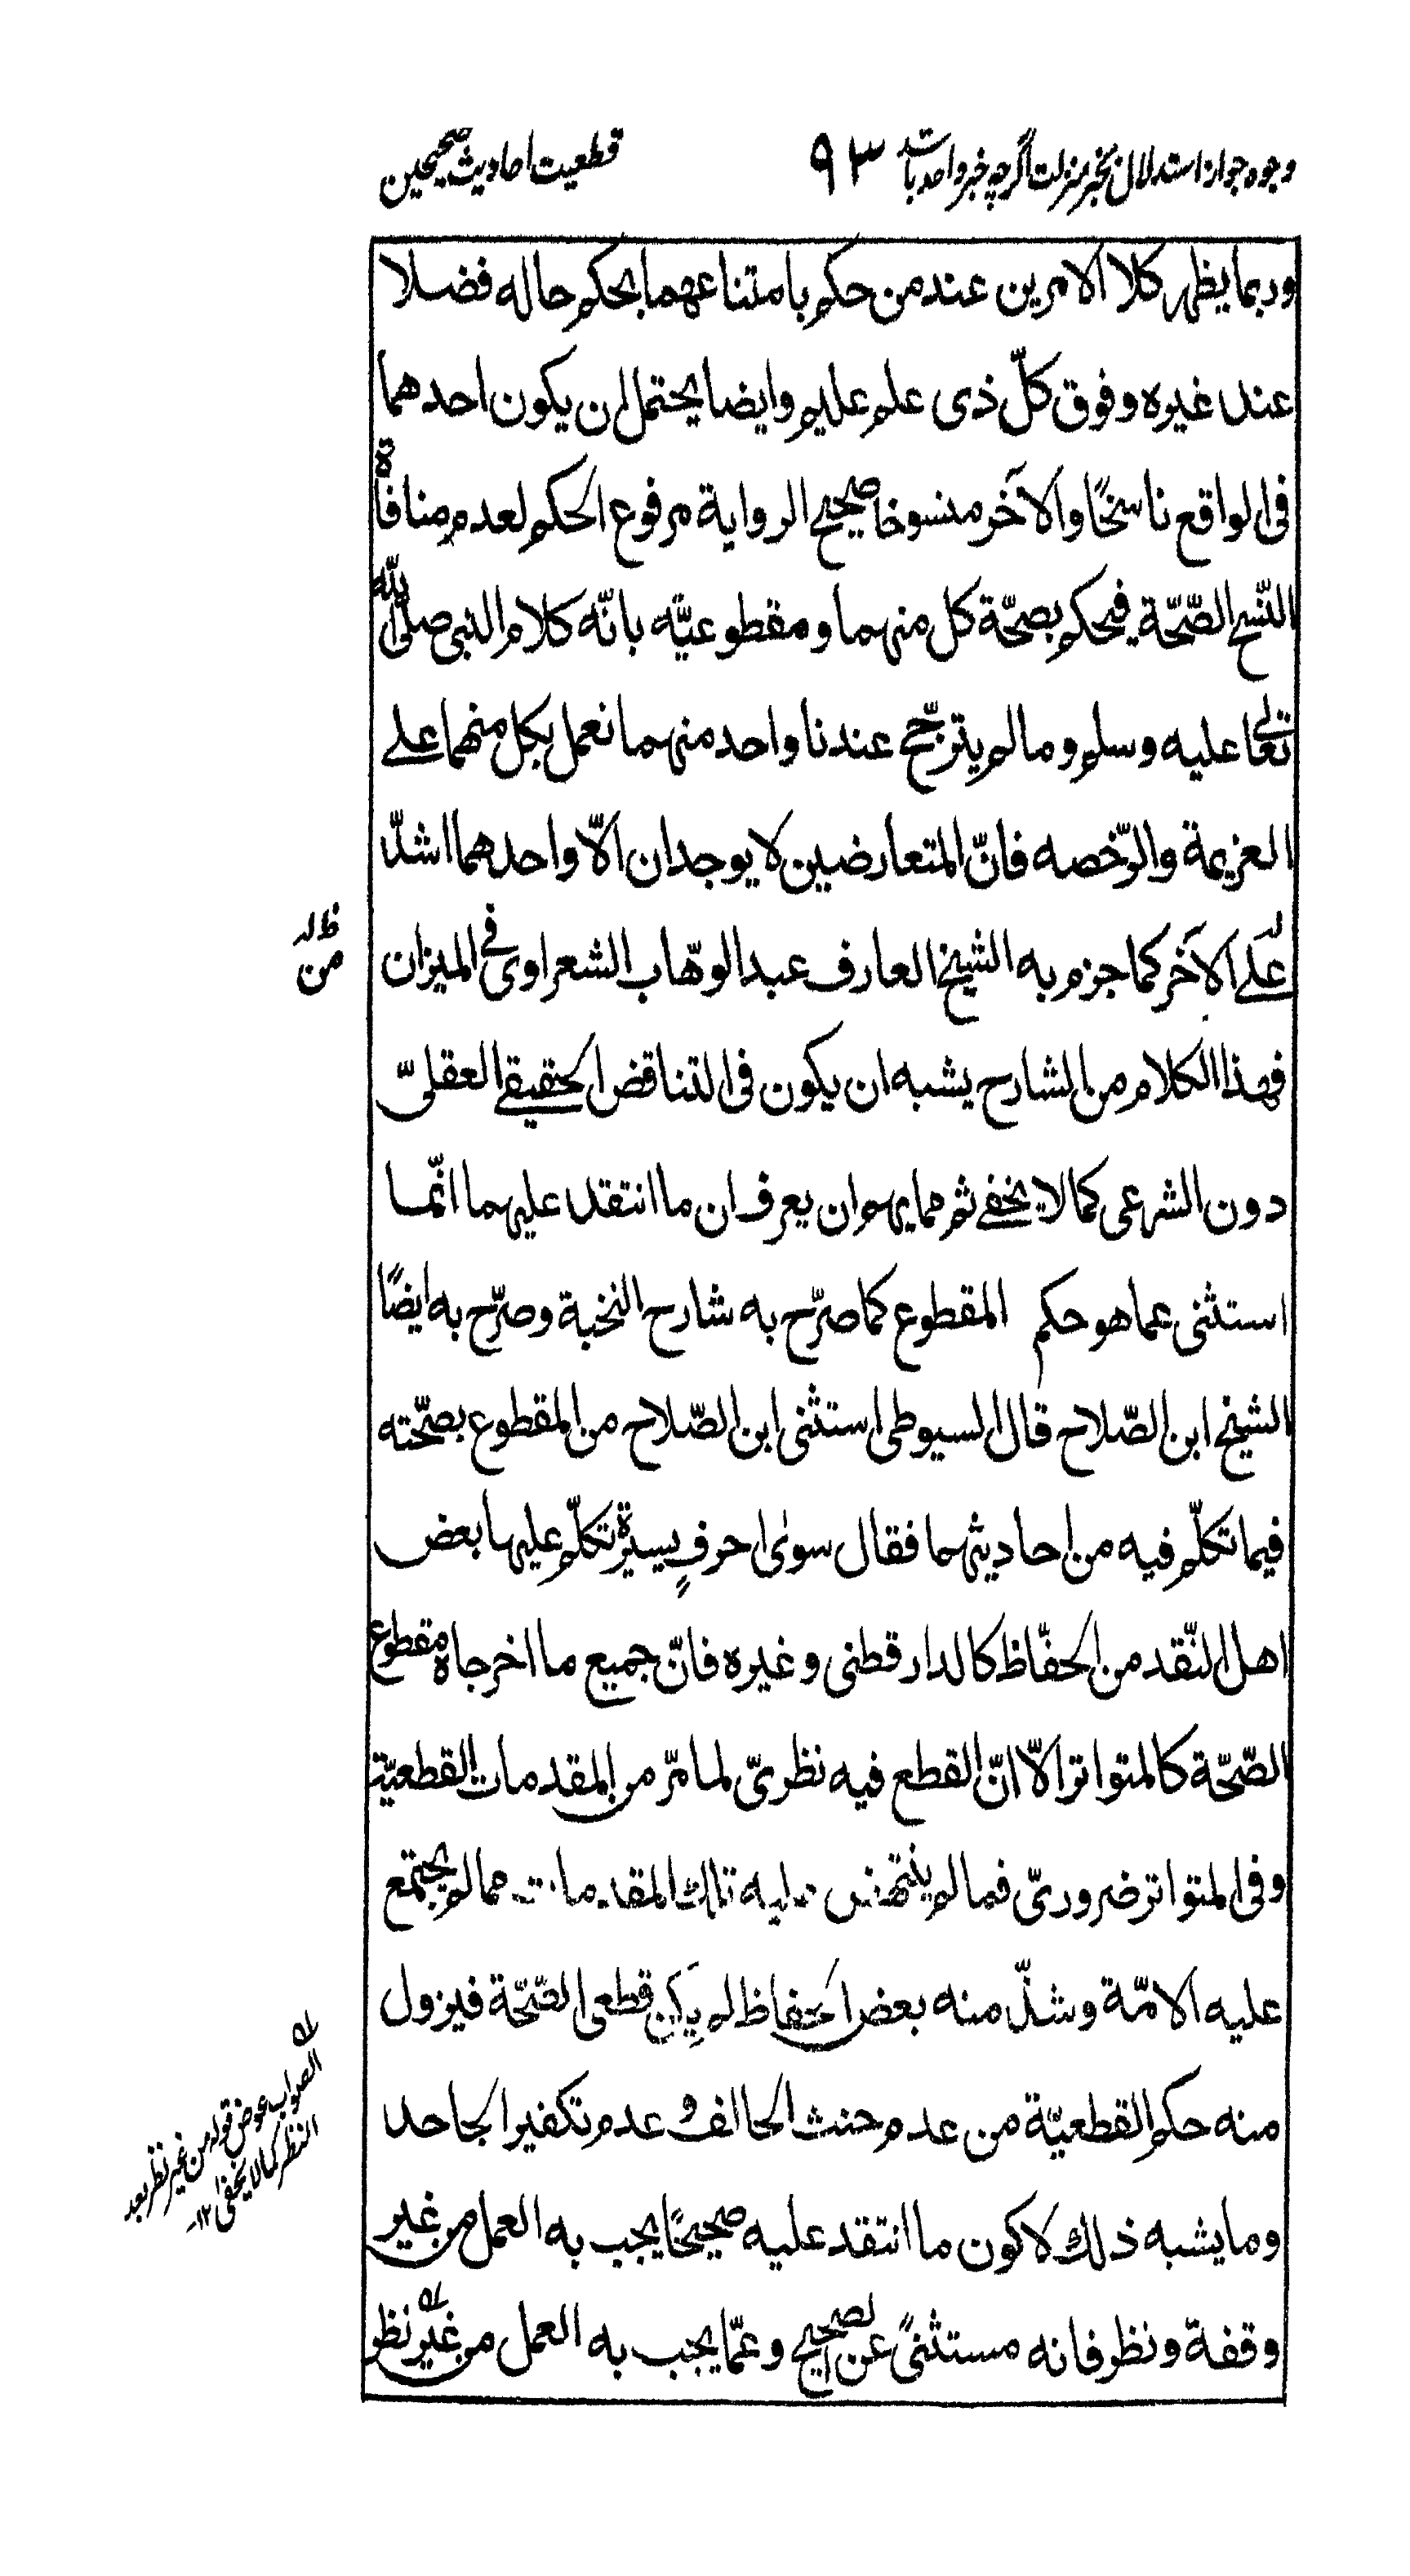 وجوہ جواز استدلال بخبر منزلت اگرچہ خبر واحد باشد ٩٣ قطعیت احادیث صحیحین
وربما يظهر كلا الامرين عند من حكم بامتناعهما بحكم حاله فضلا
عند غيره وفوق كلّ ذى علم عليم وايضا يحتمل ان يكون احدهما
فى الواقع ناسخًا والآخر منسوخا صحيح الرواية مرفوع الحكم لعدم منافاة
النّسخ الصّحّة فيحكم بصحّة كل منهما ومقطوعيّه بانّه كلام النبى صلى الله
تعالى عليه وسلم وما لم يترجّح عندنا واحد منهما نعمل بكل منهما على
العزيمة والرّخصه فانّ المتعارضين لا يوجدان الّا واحدهما اشدّ
على الآخر كما جزم به الشيخ العارف عبد الوهّاب الشعراوى فى الميزان
ظ له
من
فهذا الكلام من الشارح يشبه ان يكون فى التناقض الحقيقے العقلىّ
دون الشرعى كما لا يخفے ثم مما يهم ان يعرف ان ما انتقد عليهما انّما
استثنى عما هو حكم المقطوع كما صرّح به شارح النخبة وصرّح به ايضًا
الشيخ ابن الصّلاح قال السيوطى استثنى ابن الصّلاح من المقطوع بصحّته
فيما تكلّم فيه من احاديثهما فقال سوىٰ احرفٍ يسيرة تكلّم عليها بعض
اهل النّقد من الحفّاظ كالدارقطنى وغيره فانّ جميع ما اخرجاه مقطوع
الصّحّة كالمتواتر الّا انّ القطع فيه نظرىّ لما مرّ من المقدمات القطعيّة
وفى المتواتر ضرورىّ فما لم ينتهض عليه تلك المقدمات مما لم يجتمع
عليه الامّة وشذّ منه بعض الحفاظ لم يكن قطعى الصّحّة فيزول
منه حكم القطعيّة من عدم حنث الحالف و عدم تكفير الجاحد
وما يشبه ذلك لا كون ما انتقد عليه صحيحًا يجب به العمل من غير
وقفة ونظر فانه مستثنىً عن الصحيح وعمّا يجب به العمل من غير نظر
الصواب عوض قوله من غير نظر بعد
النظر كما لا يخفى ١٢